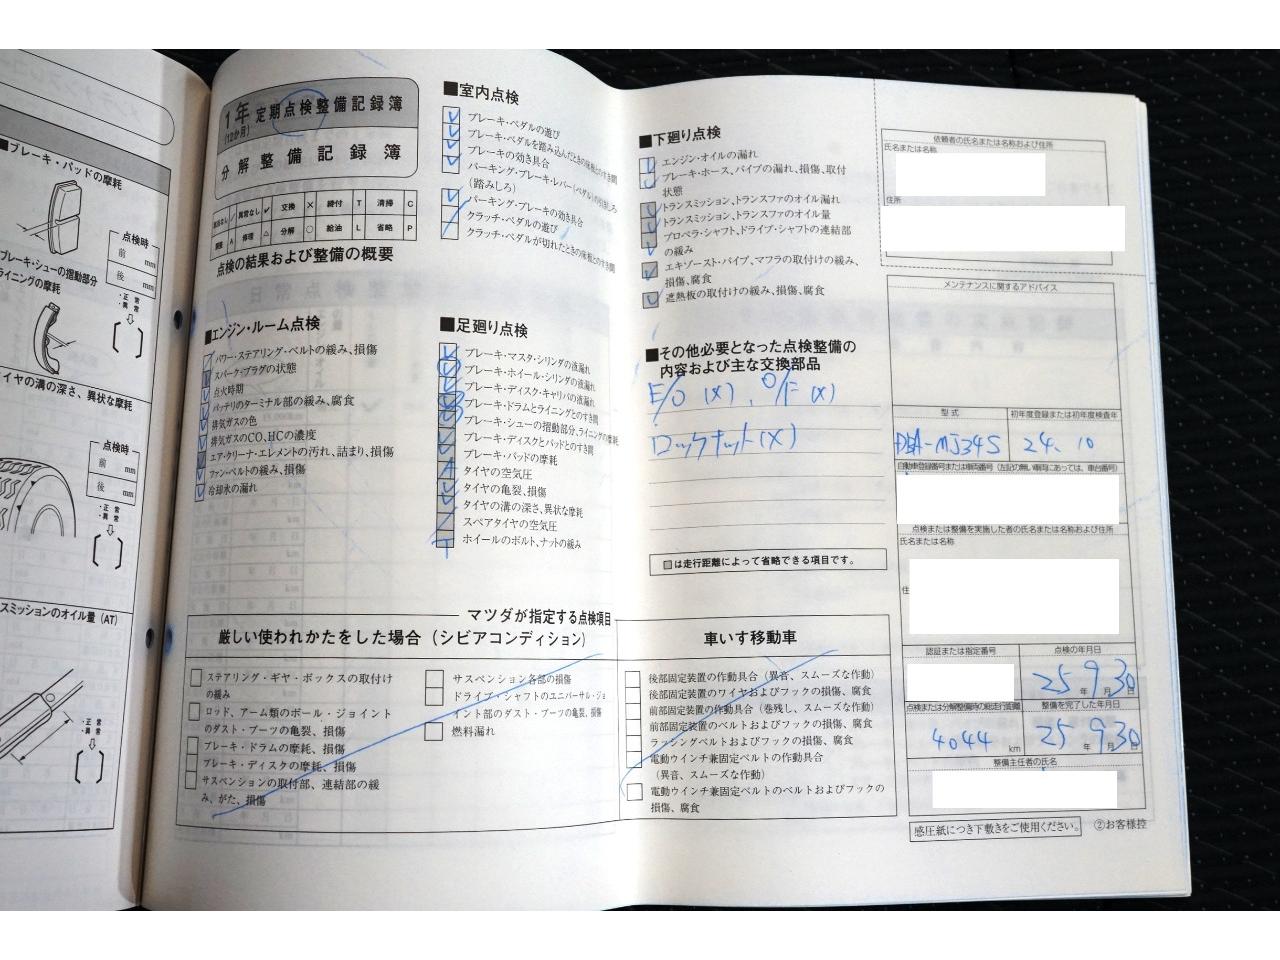 ■ブレーキ・パッドの摩耗
点検時
前 mm
後 mm
・正 常
・異 常
ブレーキ・シューの摺動部分
ライニングの摩耗
イヤの溝の深さ、異状な摩耗
点検時
前 mm
後 mm
・正 常
・異 常
スミッションのオイル量（AT）
・正 常
・異 常
1年 定期点検整備記録簿
(12か月)
分解整備記録簿
異常なし レ 交換 × 締付 T 清掃 C
調整 A 修理 △ 分解 ○ 給油 L 省略 P
点検の結果および整備の概要
■エンジン・ルーム点検
パワー・ステアリング・ベルトの緩み、損傷
スパーク・プラグの状態
点火時期
バッテリのターミナル部の緩み、腐食
排気ガスの色
排気ガスのCO、HCの濃度
エア・クリーナ・エレメントの汚れ、詰まり、損傷
ファン・ベルトの緩み、損傷
冷却水の漏れ
■室内点検
ブレーキ・ペダルの遊び
ブレーキ・ペダルを踏み込んだときの床板とのすき間
ブレーキの効き具合
パーキング・ブレーキ・レバー（ペダル）の引きしろ
（踏みしろ）
パーキング・ブレーキの効き具合
クラッチ・ペダルの遊び
クラッチ・ペダルが切れたときの床板とのすき間
■足廻り点検
ブレーキ・マスタ・シリンダの液漏れ
ブレーキ・ホイール・シリンダの液漏れ
ブレーキ・ディスク・キャリパの液漏れ
ブレーキ・ドラムとライニングとのすき間
ブレーキ・シューの摺動部分、ライニングの摩耗
ブレーキ・ディスクとパッドとのすき間
ブレーキ・パッドの摩耗
タイヤの空気圧
タイヤの亀裂、損傷
タイヤの溝の深さ、異状な摩耗
スペアタイヤの空気圧
ホイールのボルト、ナットの緩み
■下廻り点検
エンジン・オイルの漏れ
ブレーキ・ホース、パイプの漏れ、損傷、取付
状態
トランスミッション、トランスファのオイル漏れ
トランスミッション、トランスファのオイル量
プロペラ・シャフト、ドライブ・シャフトの連結部
の緩み
エキゾースト・パイプ、マフラの取付けの緩み、
損傷、腐食
遮熱板の取付けの緩み、損傷、腐食
■その他必要となった点検整備の
内容および主な交換部品
E/O (X)、O/F (X)
ロックナット(X)
□は走行距離によって省略できる項目です。
マツダが指定する点検項目
厳しい使われかたをした場合（シビアコンディション）
ステアリング・ギヤ・ボックスの取付け
の緩み
ロッド、アーム類のボール・ジョイント
のダスト・ブーツの亀裂、損傷
ブレーキ・ドラムの摩耗、損傷
ブレーキ・ディスクの摩耗、損傷
サスペンションの取付部、連結部の緩
み、がた、損傷
サスペンション各部の損傷
ドライブ・シャフトのユニバーサル・ジョ
イント部のダスト・ブーツの亀裂、損傷
燃料漏れ
車いす移動車
後部固定装置の作動具合（異音、スムーズな作動）
後部固定装置のワイヤおよびフックの損傷、腐食
前部固定装置の作動具合（巻残し、スムーズな作動）
前部固定装置のベルトおよびフックの損傷、腐食
ラッシングベルトおよびフックの損傷、腐食
電動ウインチ兼固定ベルトの作動具合
（異音、スムーズな作動）
電動ウインチ兼固定ベルトのベルトおよびフックの
損傷、腐食
依頼者の氏名または名称および住所
氏名または名称
住所
メンテナンスに関するアドバイス
型 式 初年度登録または初年度検査年
DBA-MJ34S 24. 10
自動車登録番号または車両番号（左記の無い車両にあっては、車台番号）
点検または整備を実施した者の氏名または名称および住所
氏名または名称
住
認証または指定番号 点検の年月日
25年 9月 30日
点検または分解整備時の総走行距離 整備を完了した年月日
4044 km 25年 9月 30日
整備主任者の氏名
感圧紙につき下敷きをご使用ください。 ②お客様控